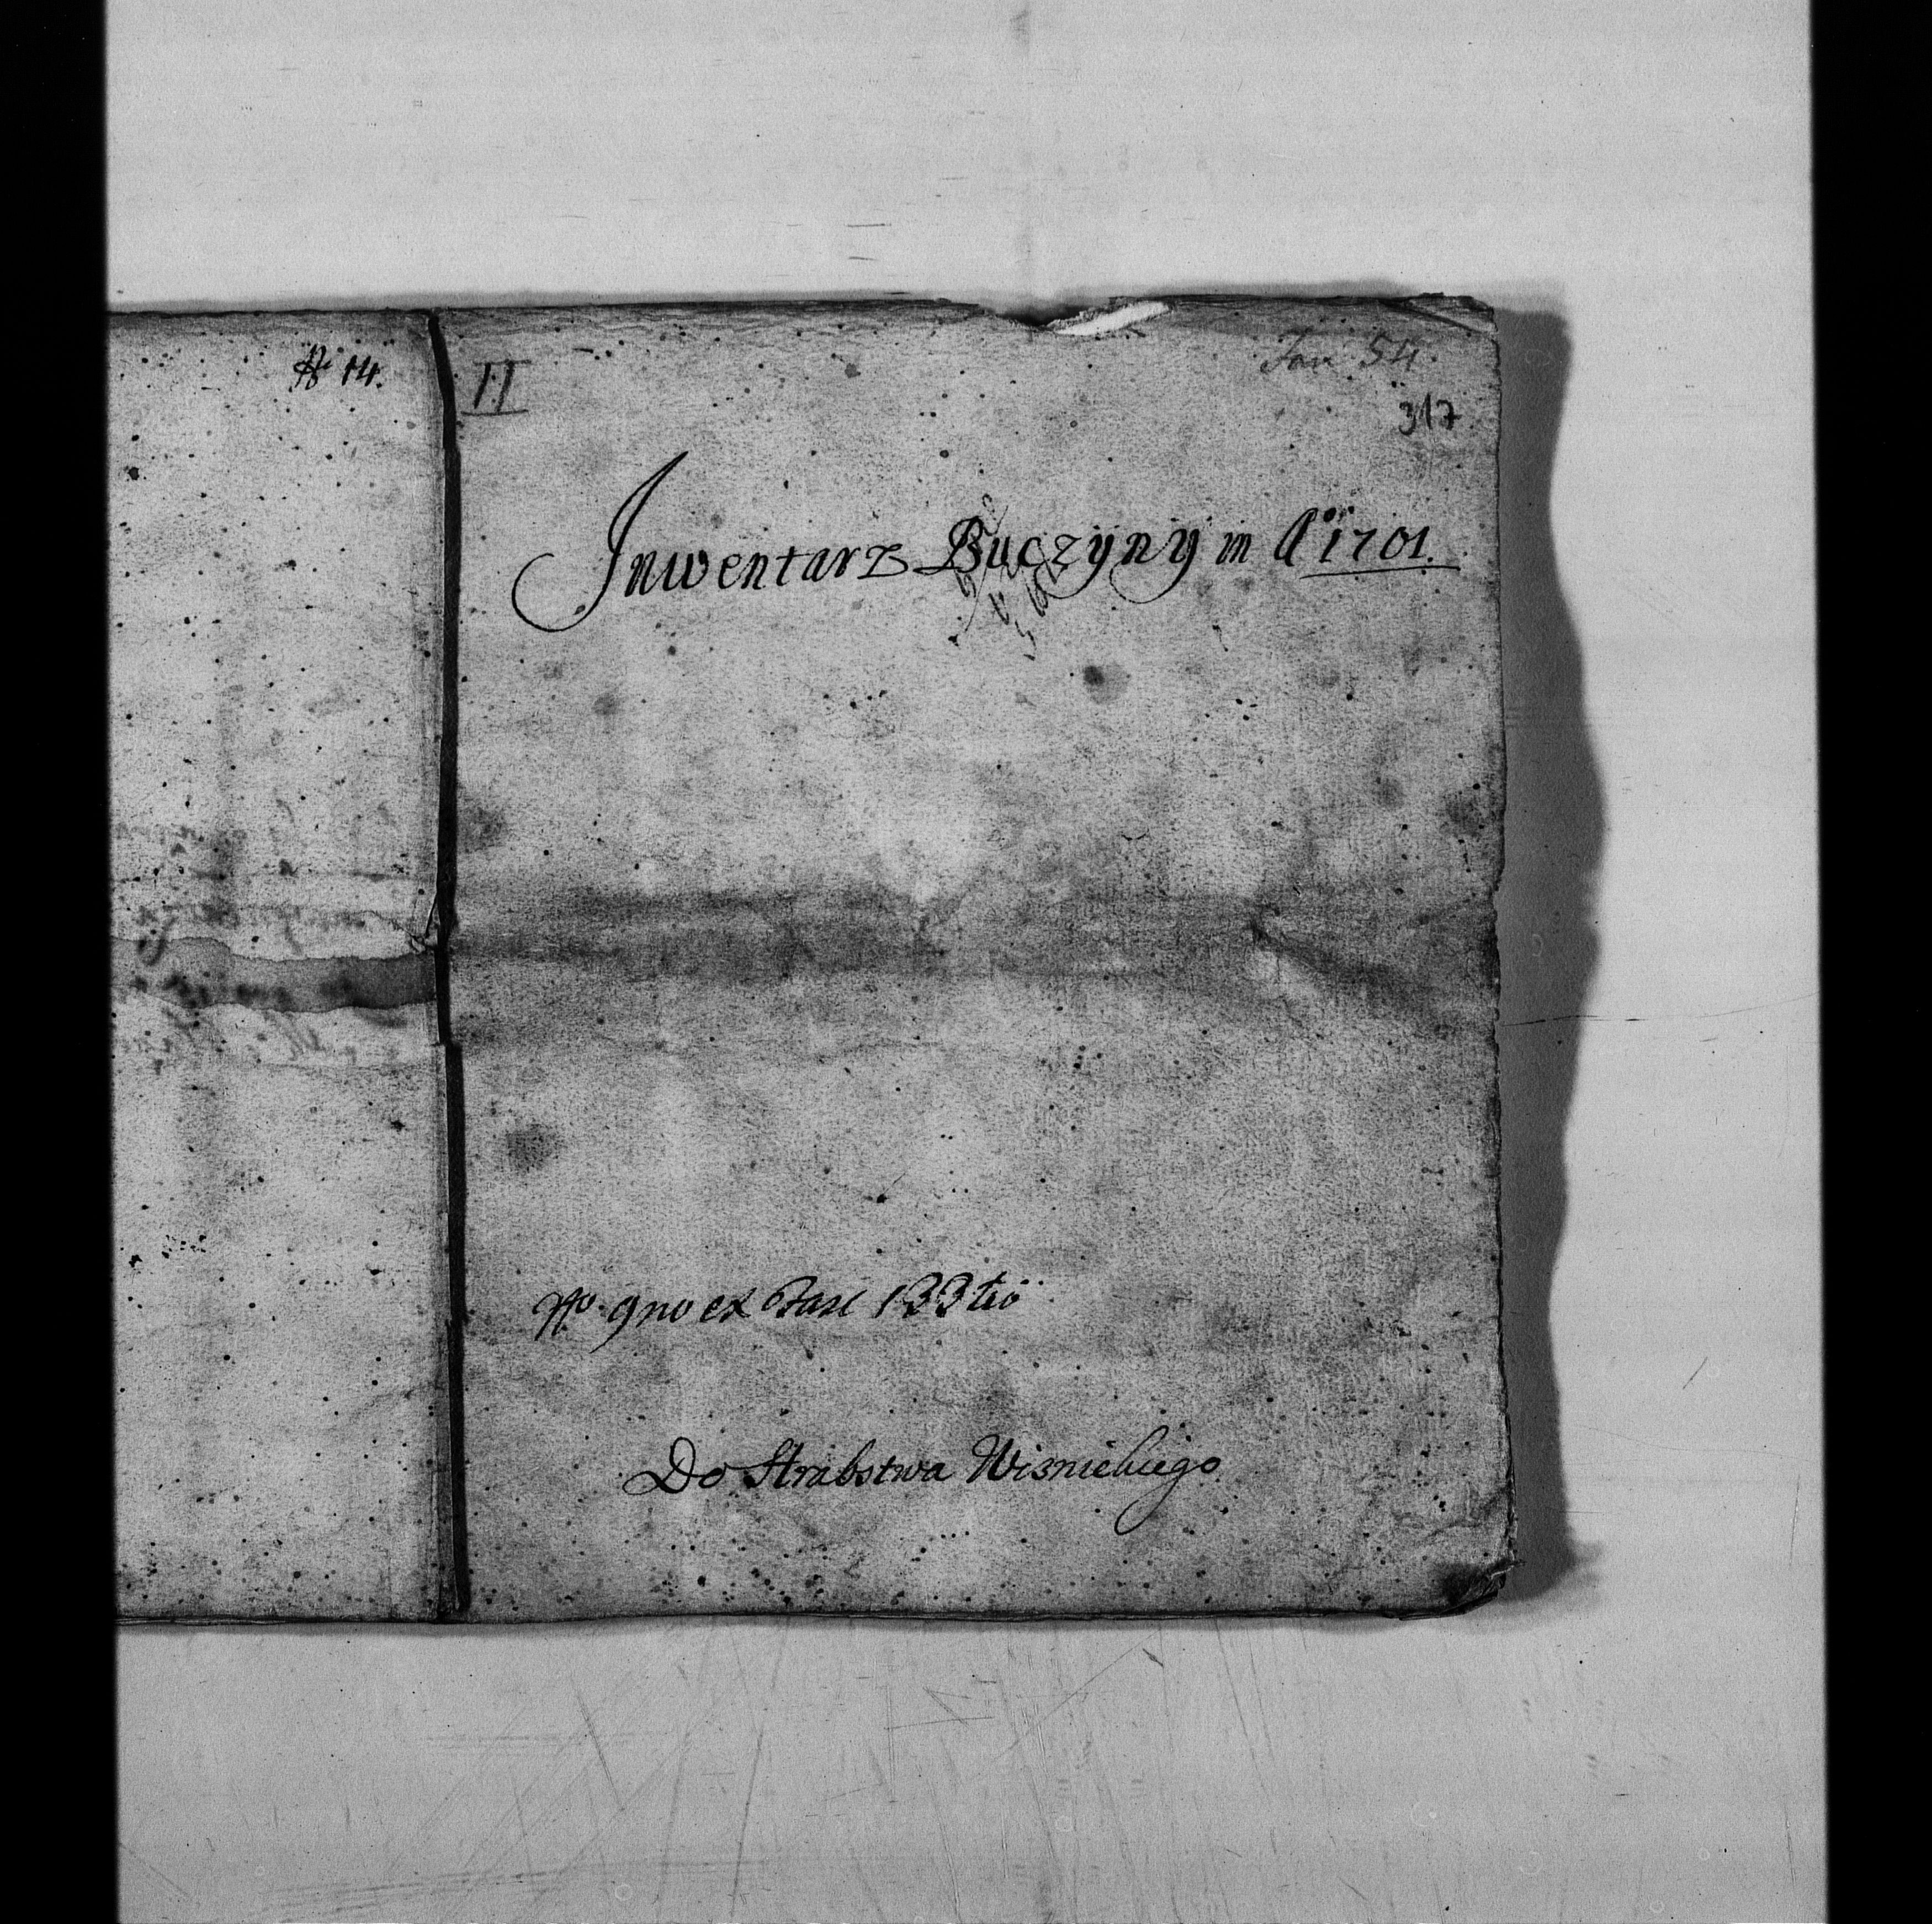 No 14.
II
Fas 54.
317
Inwentarz Buczyny in Ao 1701.
No 9no ex Fasc 133tio
Do Hrabstwa Wisnickiego